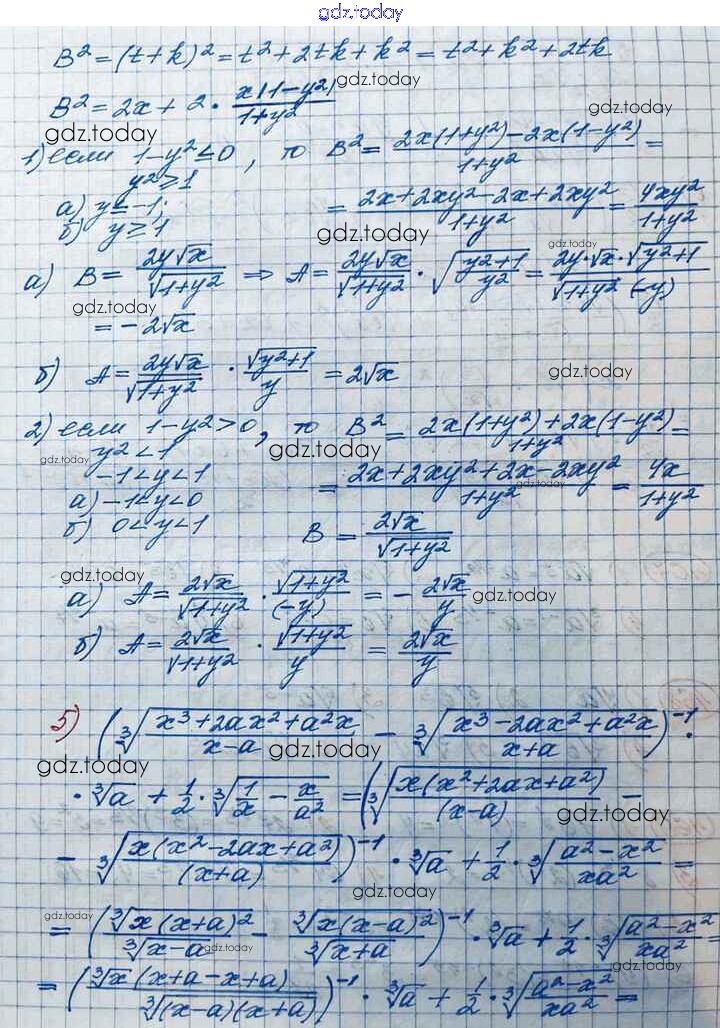 gdz.today
B² = (t+k)² = t² + 2tk + k² = t² + k² + 2tk
gdz.today
B² = 2x + 2 · x(1-y²)/1+y²
gdz.today
1) если 1-y² ≤ 0, то B² = 2x(1+y²) - 2x(1-y²)/1+y² =
y² ≥ 1
а) y ≤ -1; = 2x+2xy²-2x+2xy²/1+y² = 4xy²/1+y²
б) y ≥ 1
gdz.today
а) B = 2y√x/√1+y² ⇒ A = 2y√x/√1+y² · √y²+1/y² = 2y·√x·√y²+1/√1+y² (-y)
gdz.today gdz.today
= -2√x
б) A = 2y√x/√1+y² · √y²+1/y = 2√x
gdz.today gdz.today
2) если 1-y² > 0, то B² = 2x(1+y²) + 2x(1-y²)/1+y² =
y² < 1
gdz.today gdz.today
-1 < y < 1 = 2x+2xy²+2x-2xy²/1+y² = 4x/1+y²
gdz.today
а) -1 < y < 0
б) 0 < y < 1 B = 2√x/√1+y²
gdz.today
а) A = 2√x/√1+y² · √1+y²/(-y) = - 2√x/y
gdz.today
б) A = 2√x/√1+y² · √1+y²/y = 2√x/y
5) (∛x³+2ax²+a²x/x-a - ∛x³-2ax²+a²x/x+a)⁻¹ ·
gdz.today gdz.today
· ∛a + 1/2 · ∛1/x - x/a² = (∛x(x²+2ax+a²)/(x-a) -
gdz.today
- ∛x(x²-2ax+a²)/(x+a))⁻¹ · ∛a + 1/2 · ∛a²-x²/xa² =
gdz.today
= (∛x(x+a)²/∛x-a - ∛x(x-a)²/∛x+a)⁻¹ · ∛a + 1/2 · ∛a²-x²/xa² =
gdz.today gdz.today
= (∛x(x+a-x+a)/∛(x-a)(x+a))⁻¹ · ∛a + 1/2 · ∛a²-x²/xa² =